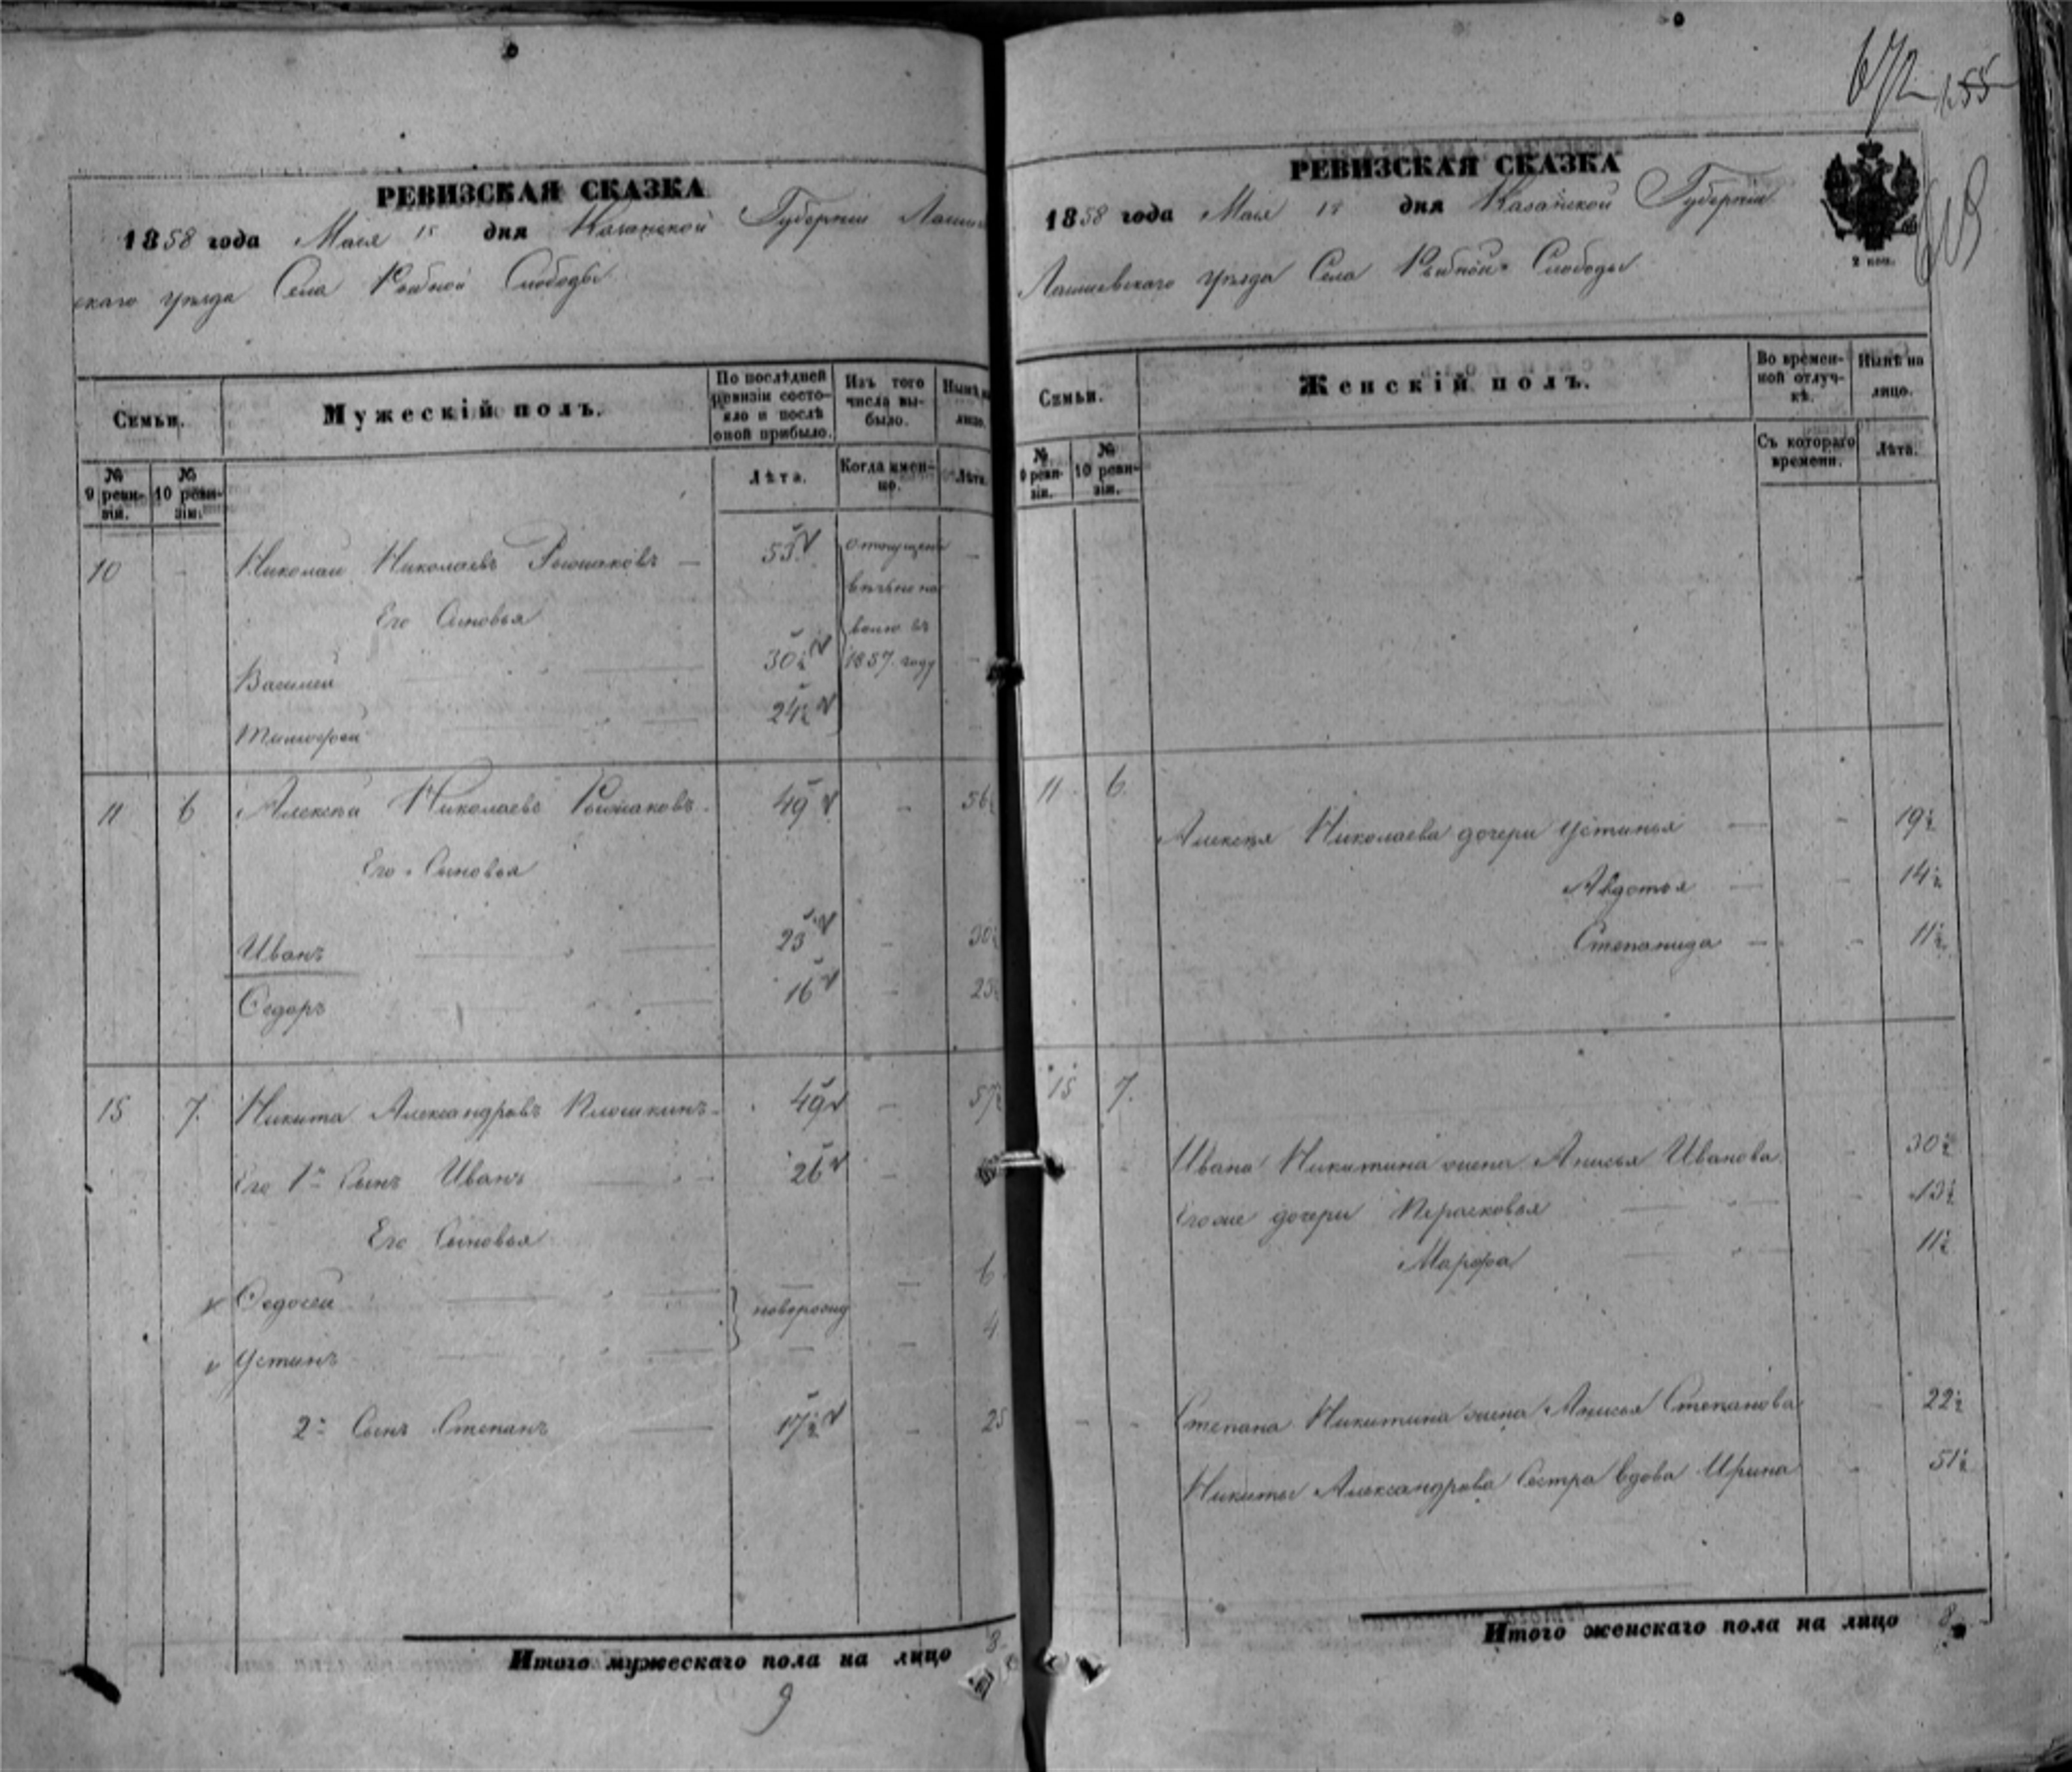 РЕВИЗСКАЯ СКАЗКА
1858 года Мая 15 дня Казанской Губернии Лаишев
скаго уѣзда Села Рыбной Слободы
Семьи.
Мужескій полъ.
По послѣдней ревизіи состояло и послѣ оной прибыло.
Изъ того числа выбыло.
Нынѣ на лицо.
№ 9 ревизіи.
№ 10 ревизіи.
Лѣта.
Когда именно.
Лѣта.
10 - Николай Николаевъ — 53 отпущены —
Его Сыновья вѣчно на
волю въ
Василій 30½ 1857. году —
Тимофей 24½ —
11 6 Алексѣй Николаевъ 49 - 56½
Его Сыновья
Иванъ 23 - 30½
Ѳедоръ 16 - 23½
15 7. Никита Александровъ Плюшкинъ 49 - 57½
Его 1й Сынъ Иванъ 26 -
Его Сыновья
Ѳедосей — 6
Устинъ новорожд — 4
2й Сынъ Степанъ 17½ - 25
Итого мужескаго пола на лицо 8
9
672 155
РЕВИЗСКАЯ СКАЗКА
1858 года Мая 15 дня Казанской Губерніи
Лаишевскаго уѣзда Села Рыбной Слободы
2 коп.
Семьи.
Женскій полъ.
Во временной отлучкѣ.
Нынѣ на лицо.
№ 9 ревизіи.
№ 10 ревизіи.
Съ котораго времени.
Лѣта.
11 6.
Алексѣя Николаева дочери Устинья — - 19½
Авдотья — - 14½
Степанида — - 11½
15 7.
Ивана Никитина жена Анисья Иванова - 30½
Егоже дочери Парасковья - 13½
Марфа 11½
Степана Никитина жена Анисья Степанова - 22½
Никиты Александрова Сестра вдова Ирина - 51½
Итого женскаго пола на лицо 8